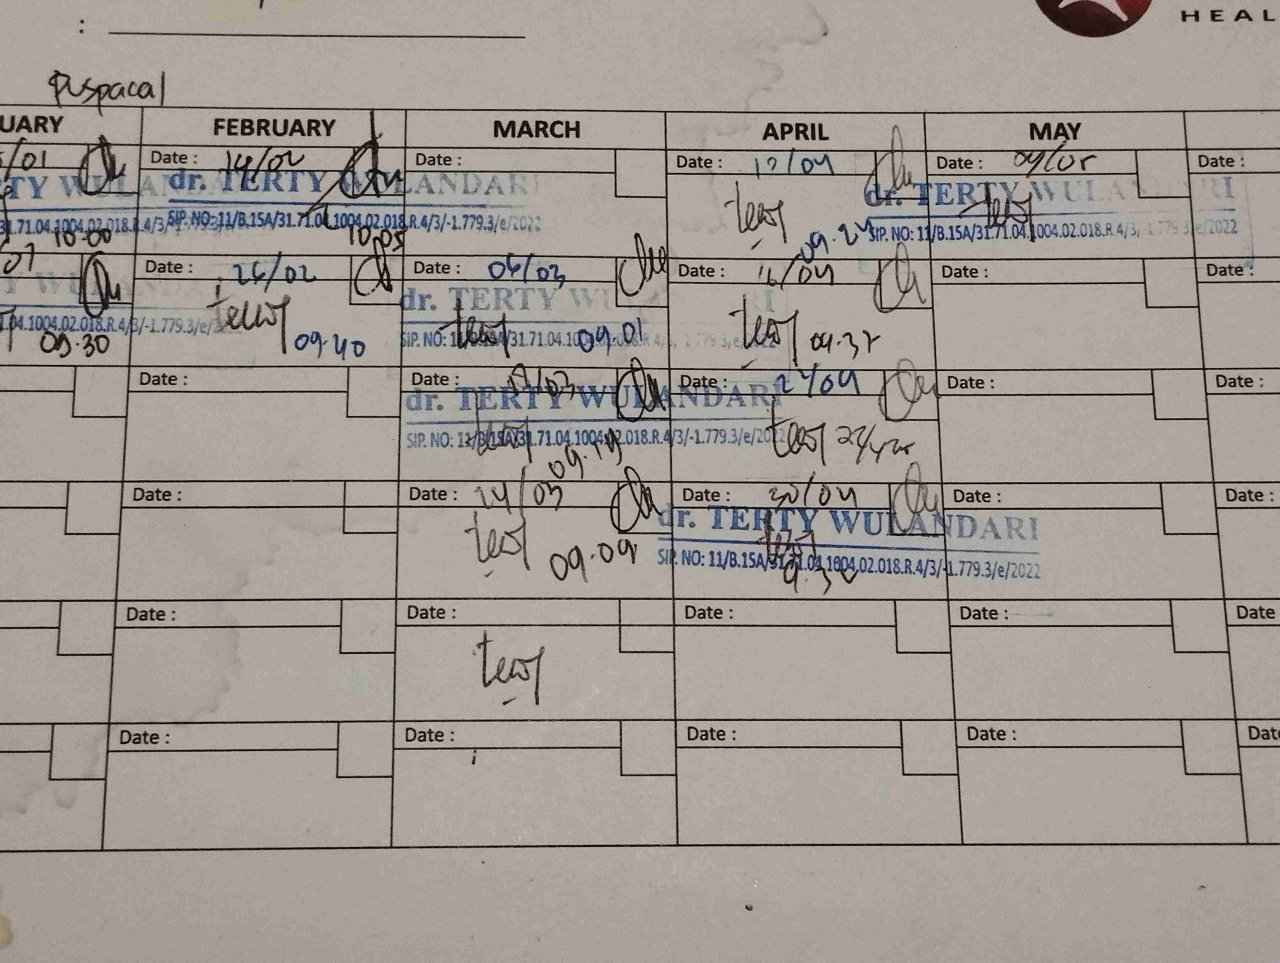 HEAL
:
Puspacal
UARY FEBRUARY MARCH APRIL MAY
/01 Date : 14/02 Date : Date : 12/04 Date : 09/05 Date :
TY WULANDARI dr. TERTY WULANDARI dr. TERTY WULANDARI
31.71.04.1004.02.018.R.4/3/ SIP. NO: 11/B.15A/31.71.04.1004.02.018.R.4/3/-1.779.3/e/2022 SIP. NO: 11/B.15A/31.71.04.1004.02.018.R.4/3/-1.779.3/e/2022
10.00 10.05 09.24
Date : 26/02 Date : 06/03 Date : 16/04 Date : Date :
dr. TERTY WULANDARI
04.1004.02.018.R.4/3/-1.779.3/e/2 SIP. NO: 11/B.15A/31.71.04.1004.02.018.R.4/3/-1.779.3/e/2022
09.30 09.40 09.01 09.32
Date : Date : Date : Date : Date :
dr. TERTY WULANDARI
SIP. NO: 11/B.15A/31.71.04.1004.02.018.R.4/3/-1.779.3/e/2022
09.19
Date : Date : 24/03 Date : 30/04 Date : Date :
dr. TERTY WULANDARI
09.09 SIP. NO: 11/B.15A/31.71.04.1004.02.018.R.4/3/-1.779.3/e/2022
9.30
Date : Date : Date : Date : Date
Date : Date : Date : Date : Dat